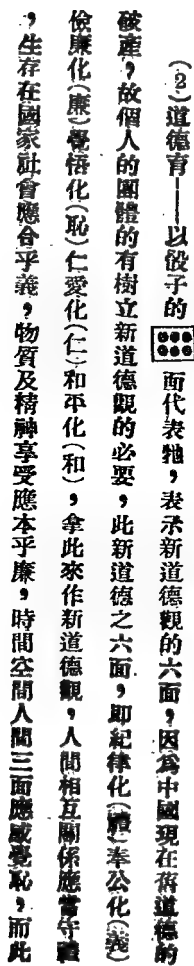 （2）道德育——以骰子的面代表牠，表示新道德觀的六面，因爲中國現在舊道德的
破產，故個人的團體的有樹立新道德觀的必要，此新道德之六面，卽紀律化（禮）奉公化（義）
儉廉化（廉）覺悟化（恥）仁愛化（仁）和平化（和），拿此來作新道德觀，人間相互關係應當守禮
，生存在國家社會應合乎義，物質及精神享受應本乎廉，時間空間人間三面應感覺恥，而此